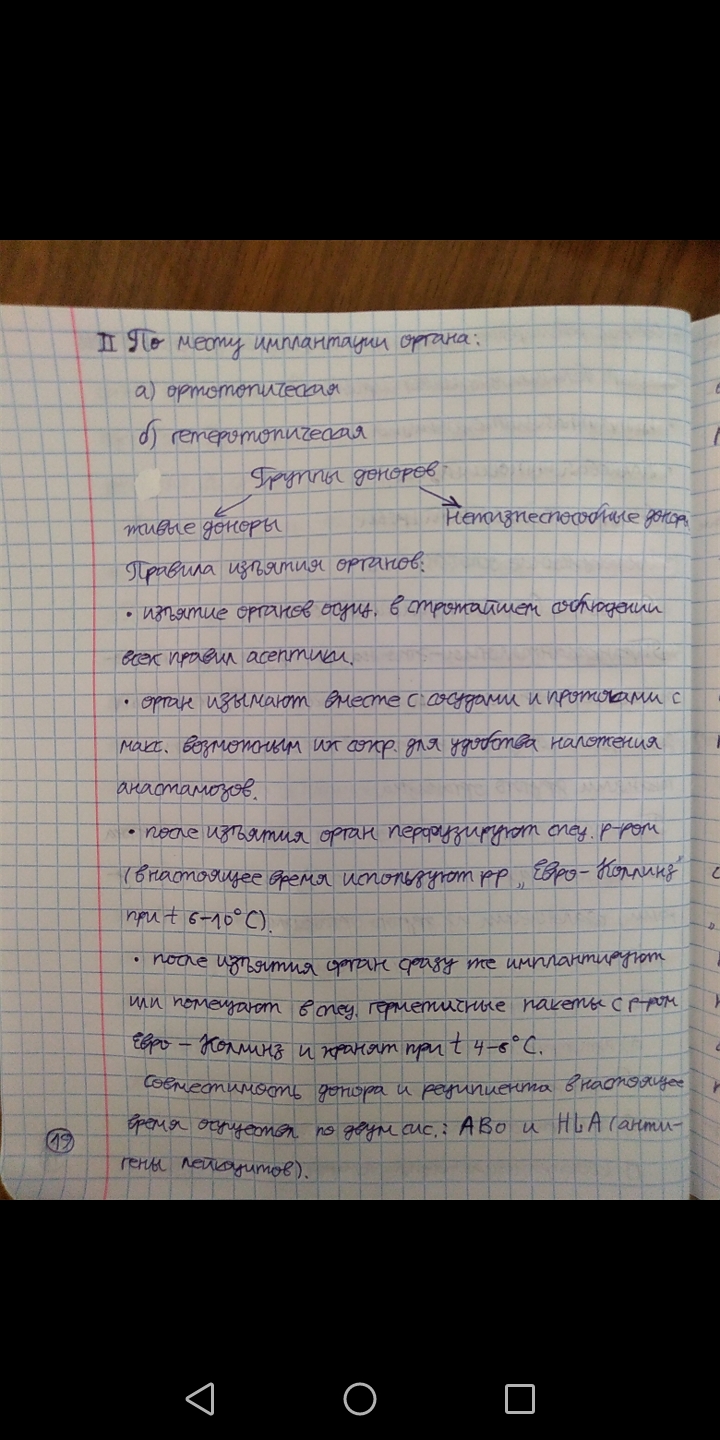 II По месту имплантации органа:
а) ортотопическая
б) гетеротопическая
Группы доноров:
живые доноры
Нежизнеспособные донор
Правила изъятия органов:
• изъятие органов осущ. в строжайшем соблюдении
всех правил асептики.
• орган изымают вместе с сосудами и протоками с
макс. возможным их сохр. для удобства наложения
анастамозов.
• после изъятия орган перфузируют спец. р-ром
(в настоящее время используют рр „Евро-Коллинз"
при t 6-10°С).
• после изъятия орган сразу же имплантируют
или помещают в спец. герметичные пакеты с р-ром
Евро - Коллинз и хранят при t 4-6°С.
Совместимость донора и реципиента в настоящее
время осущества по двум сис.: АВ0 и HLA (анти-
гены лейкоцитов).
19